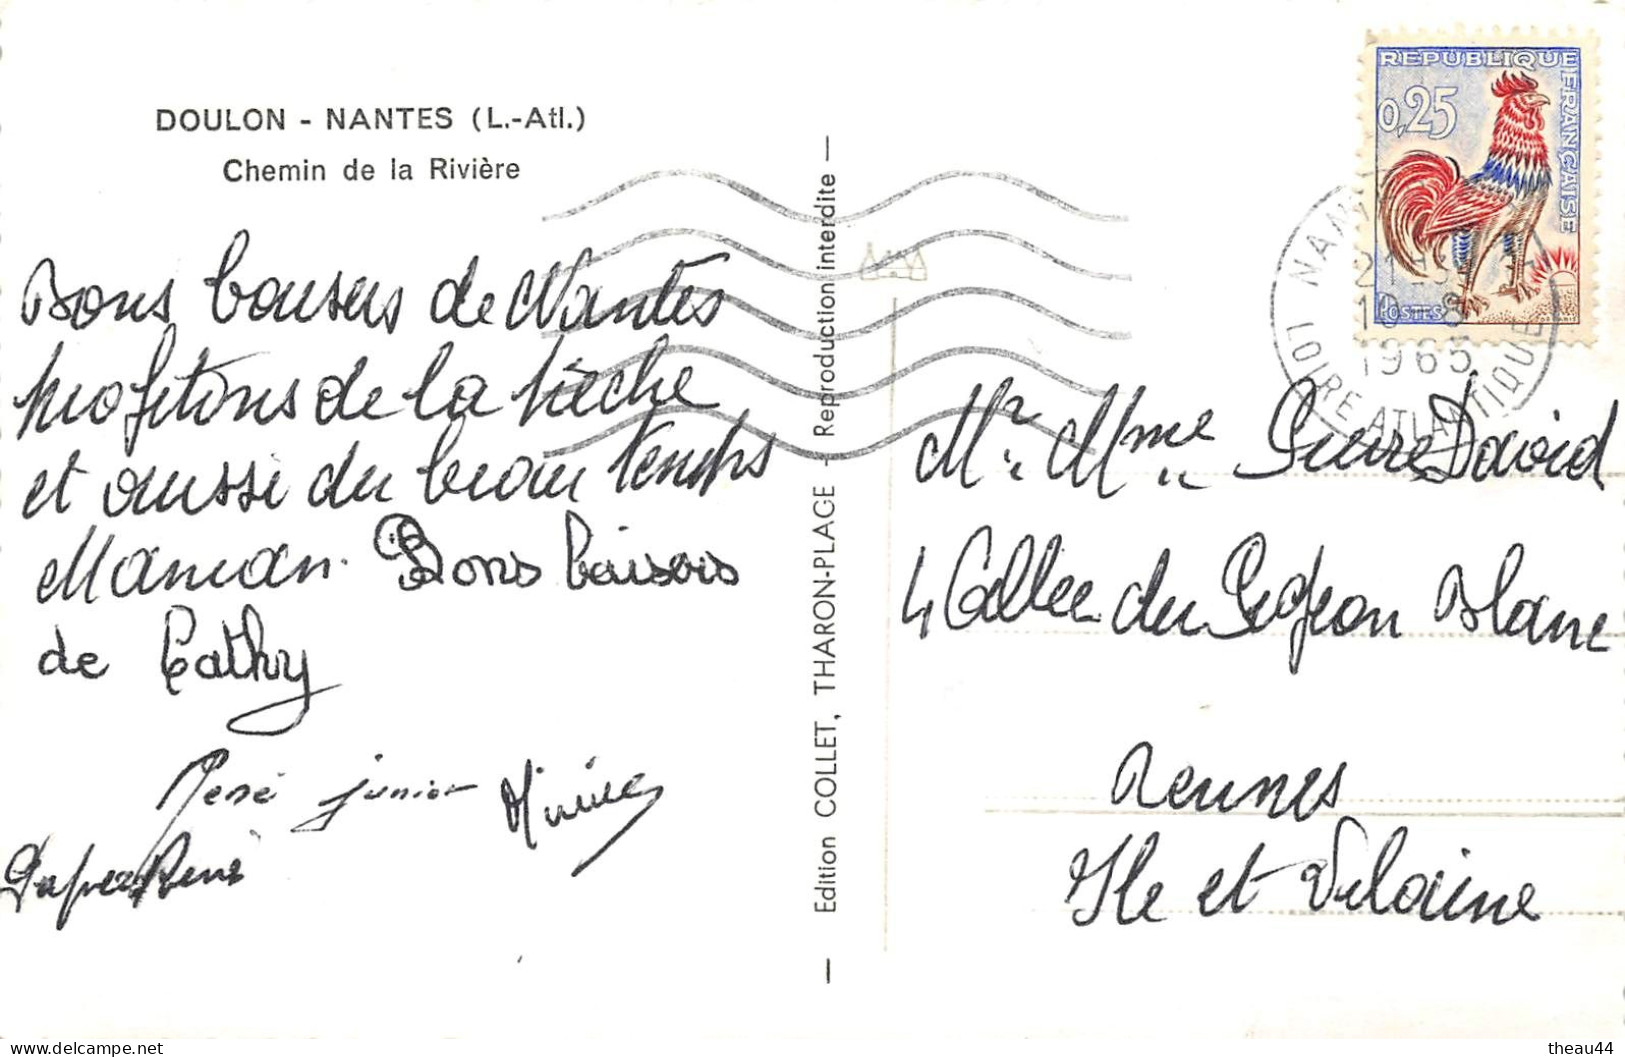 DOULON - NANTES (L.-Atl.)
Chemin de la Rivière
Bons baisers de Nantes
profitons de la pêche
et aussi du beau temps
Maman. Bons baisers
de Cathy
René junior
René
Edition COLLET, THARON-PLAGE - Reproduction interdite
REPUBLIQUE FRANÇAISE
0,25
POSTES
NANTES
LOIRE ATLANTIQUE
21H
10-8
1965
Mr. Mme Pierre David
4 Allée du Pigeon Blanc
Rennes
Ile et Vilaine
theau44